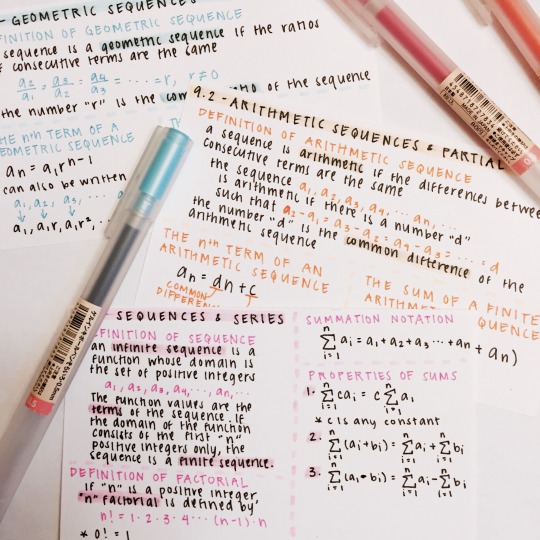 - GEOMETRIC SEQUENCES
DEFINITION OF GEOMETRIC SEQUENCE
sequence is a geometric sequence if the ratios
consecutive terms are the same
a₂/a₁ = a₃/a₂ = a₄/a₃ = ... = r, r ≠ 0
the number "r" is the of the sequence
THE nth TERM OF A
GEOMETRIC SEQUENCE
an = a₁rn-1
can also be written
a₁, a₂, a₃,
a₁, a₁r, a₁r²,
9.2 - ARITHMETIC SEQUENCES & PARTIAL
DEFINITION OF ARITHMETIC SEQUENCE
a sequence is arithmetic if the differences between
consecutive terms are the same
the sequence a₁, a₂, a₃, a₄, ... an, ...
is arithmetic if there is a number "d"
such that a₂-a₁ = a₃-a₂ = a₄-a₃ = ... = d
the number "d" is the common difference of the
arithmetic sequence
THE nth TERM OF AN
ARITHMETIC SEQUENCE
an = dn + c
COMMON
THE SUM OF A FINITE
SEQUENCES & SERIES
DEFINITION OF SEQUENCE
an infinite sequence is a
function whose domain is
the set of positive integers
a₁, a₂, a₃, a₄, ..., an, ...
The function values are the
terms of the sequence. If
the domain of the function
consists of the first "n"
positive integers only, the
sequence is a finite sequence.
DEFINITION OF FACTORIAL
If "n" is a positive integer,
"n" factorial is defined by
n! = 1·2·3·4··· (n-1)·n
* 0! = 1
SUMMATION NOTATION
n∑i=1 ai = a₁ + a₂ + a₃ ··· + an + an)
PROPERTIES OF SUMS
1. n∑i=1 cai = c n∑i=1 ai
* c is any constant
2. n∑i=1 (ai + bi) = n∑i=1 ai + n∑i=1 bi
3. n∑i=1 (ai - bi) = n∑i=1 ai - n∑i=1 bi